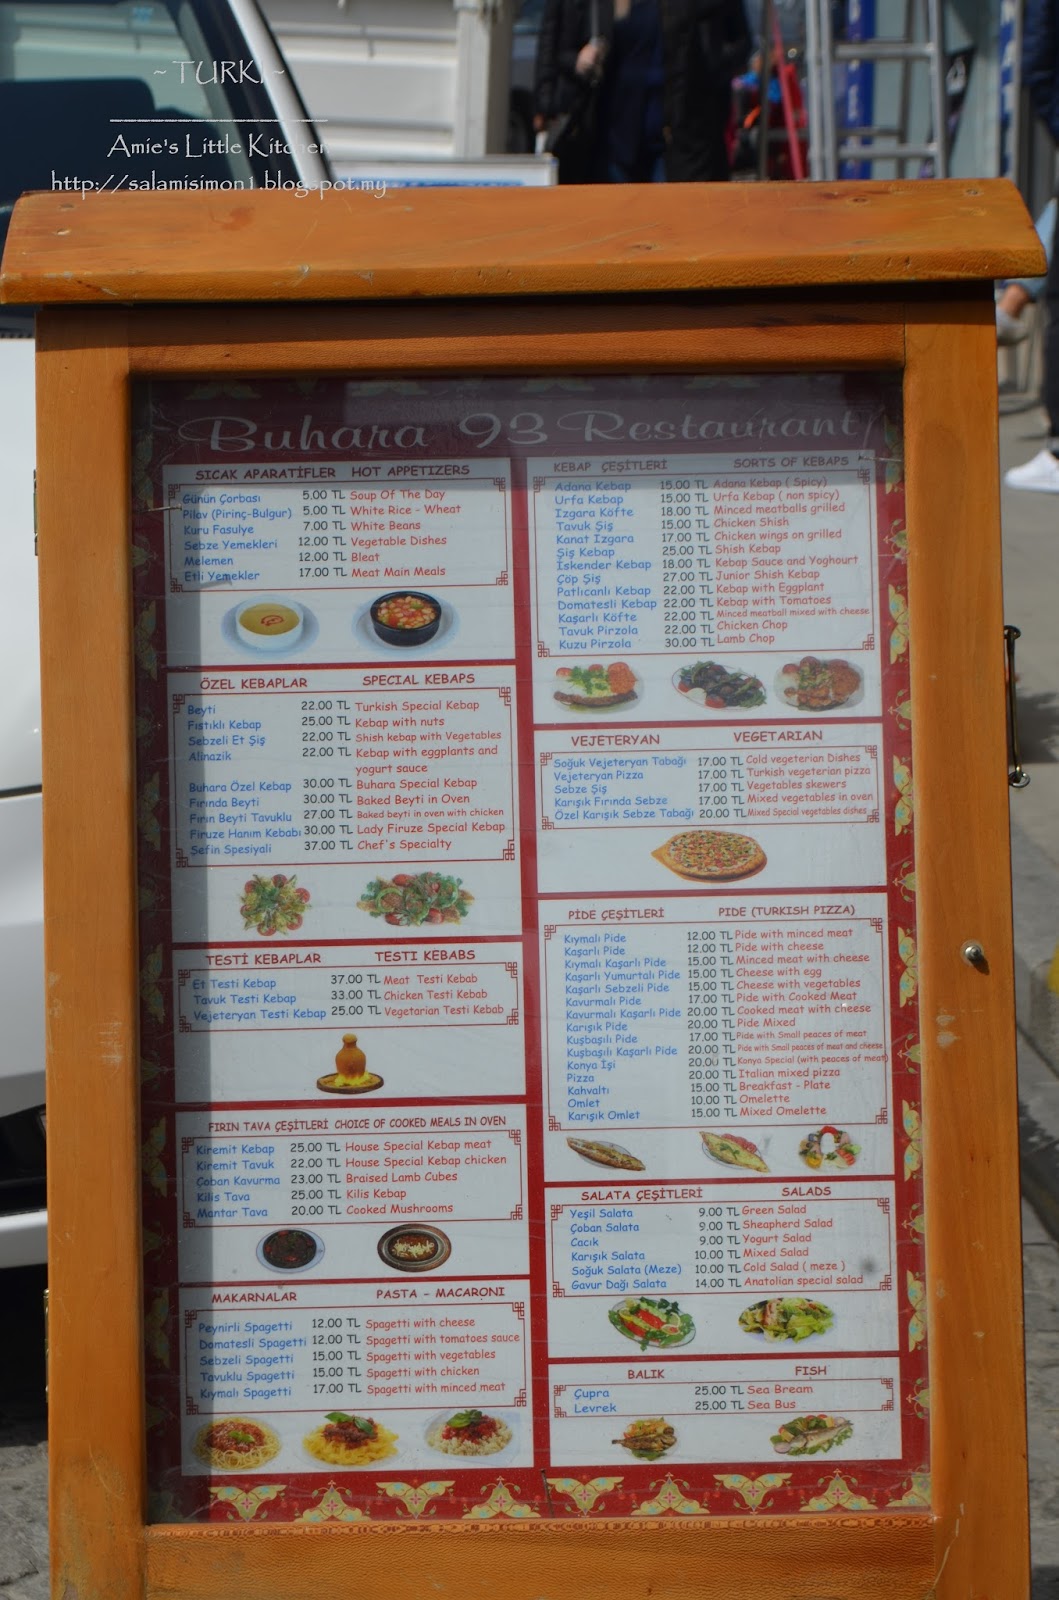 ~ TURKI ~
Amie's Little Kitchen
http://salamisimon1.blogspot.my
Buhara 93 Restaurant
SICAK APARATİFLER HOT APPETIZERS
Günün Çorbası 5.00 TL Soup Of The Day
Pilav (Pirinç-Bulgur) 5.00 TL White Rice - Wheat
Kuru Fasulye 7.00 TL White Beans
Sebze Yemekleri 12.00 TL Vegetable Dishes
Melemen 12.00 TL Bleat
Etli Yemekler 17.00 TL Meat Main Meals
ÖZEL KEBAPLAR SPECIAL KEBAPS
Beyti 22.00 TL Turkish Special Kebap
Fıstıklı Kebap 25.00 TL Kebap with nuts
Sebzeli Et Şiş 22.00 TL Shish kebap with Vegetables
Alinazik 22.00 TL Kebap with eggplants and
yogurt sauce
Buhara Özel Kebap 30.00 TL Buhara Special Kebap
Fırında Beyti 30.00 TL Baked Beyti in Oven
Fırın Beyti Tavuklu 27.00 TL Baked beyti in oven with chicken
Firuze Hanım Kebabı 30.00 TL Lady Firuze Special Kebap
Şefin Spesiyali 37.00 TL Chef's Specialty
TESTİ KEBAPLAR TESTI KEBABS
Et Testi Kebap 37.00 TL Meat Testi Kebab
Tavuk Testi Kebap 33.00 TL Chicken Testi Kebab
Vejeteryan Testi Kebap 25.00 TL Vegetarian Testi Kebab
FIRIN TAVA ÇEŞİTLERİ CHOICE OF COOKED MEALS IN OVEN
Kiremit Kebap 25.00 TL House Special Kebap meat
Kiremit Tavuk 22.00 TL House Special Kebap chicken
Çoban Kavurma 23.00 TL Braised Lamb Cubes
Kilis Tava 25.00 TL Kilis Kebap
Mantar Tava 20.00 TL Cooked Mushrooms
MAKARNALAR PASTA - MACARONI
Peynirli Spagetti 12.00 TL Spagetti with cheese
Domatesli Spagetti 12.00 TL Spagetti with tomatoes sauce
Sebzeli Spagetti 15.00 TL Spagetti with vegetables
Tavuklu Spagetti 15.00 TL Spagetti with chicken
Kıymalı Spagetti 17.00 TL Spagetti with minced meat
KEBAP ÇEŞİTLERİ SORTS OF KEBAPS
Adana Kebap 15.00 TL Adana Kebap ( Spicy)
Urfa Kebap 15.00 TL Urfa Kebap ( non spicy)
Izgara Köfte 18.00 TL Minced meatballs grilled
Tavuk Şiş 15.00 TL Chicken Shish
Kanat Izgara 17.00 TL Chicken wings on grilled
Şiş Kebap 25.00 TL Shish Kebap
İskender Kebap 18.00 TL Kebap Sauce and Yoghourt
Çöp Şiş 27.00 TL Junior Shish Kebap
Patlıcanlı Kebap 22.00 TL Kebap with Eggplant
Domatesli Kebap 22.00 TL Kebap with Tomatoes
Kaşarlı Köfte 22.00 TL Minced meatball mixed with cheese
Tavuk Pirzola 22.00 TL Chicken Chop
Kuzu Pirzola 30.00 TL Lamb Chop
VEJETERYAN VEGETARIAN
Soğuk Vejeteryan Tabağı 17.00 TL Cold vegeterian Dishes
Vejeteryan Pizza 17.00 TL Turkish vegeterian pizza
Sebze Şiş 17.00 TL Vegetables skewers
Karışık Fırında Sebze 17.00 TL Mixed vegetables in oven
Özel Karışık Sebze Tabağı 20.00 TL Mixed Special vegetables dishes
PİDE ÇEŞİTLERİ PIDE (TURKISH PIZZA)
Kıymalı Pide 12.00 TL Pide with minced meat
Kaşarlı Pide 12.00 TL Pide with cheese
Kıymalı Kaşarlı Pide 15.00 TL Minced meat with cheese
Kaşarlı Yumurtalı Pide 15.00 TL Cheese with egg
Kaşarlı Sebzeli Pide 15.00 TL Cheese with vegetables
Kavurmalı Pide 17.00 TL Pide with Cooked Meat
Kavurmalı Kaşarlı Pide 20.00 TL Cooked meat with cheese
Karışık Pide 20.00 TL Pide Mixed
Kuşbaşılı Pide 17.00 TL Pide with Small peaces of meat
Kuşbaşılı Kaşarlı Pide 20.00 TL Pide with Small peaces of meat and cheese
Konya İşi 20.00 TL Konya Special (with peaces of meat)
Pizza 20.00 TL Italian mixed pizza
Kahvaltı 15.00 TL Breakfast - Plate
Omlet 10.00 TL Omelette
Karışık Omlet 15.00 TL Mixed Omelette
SALATA ÇEŞİTLERİ SALADS
Yeşil Salata 9.00 TL Green Salad
Çoban Salata 9.00 TL Sheapherd Salad
Cacık 9.00 TL Yogurt Salad
Karışık Salata 10.00 TL Mixed Salad
Soğuk Salata (Meze) 10.00 TL Cold Salad ( meze )
Gavur Dağı Salata 14.00 TL Anatolian special salad
BALIK FISH
Çupra 25.00 TL Sea Bream
Levrek 25.00 TL Sea Bus